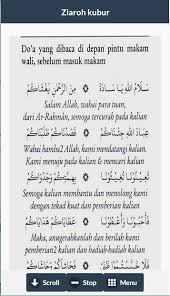 Ziaroh kubur
Do'a yang dibaca di depan pintu makam
wali, sebelum masuk makam
سَلَامُ اللهِ يَا سَادَةْ مِنَ الرَّحْمٰنِ يَغْشَاكُمْ
Salam Allah, wahai para tuan,
dari Ar-Rahmân, semoga tercurah pada kalian
عِبَادَ اللهِ جِئْنَاكُمْ قَصَدْنَاكُمْ طَلَبْنَاكُمْ
Wahai hamba2 Allah, kami mendatangi kalian.
Kami menuju pada kalian & mencari kalian
تُعِيْنُوْنَا تُغِيْثُوْنَا بِهِمَّتِكُمْ وَجَدْوَاكُمْ
Semoga kalian membantu dan menolong kami
dengan tekad kuat dan pemberian kalian
فَأَحْبُوْنَا وَأَعْطُوْنَا عَطَايَاكُمْ هَدَايَاكُمْ
Maka, anugerahkanlah dan berilah kami
pemberian2 kalian dan hadiah-hadiah kalian
فَلَا خَيَّبْتُمُوْا ظَنِّيْ فَحَاشَاكُمْ وَحَاشَاكُمْ
Scroll Stop Menu